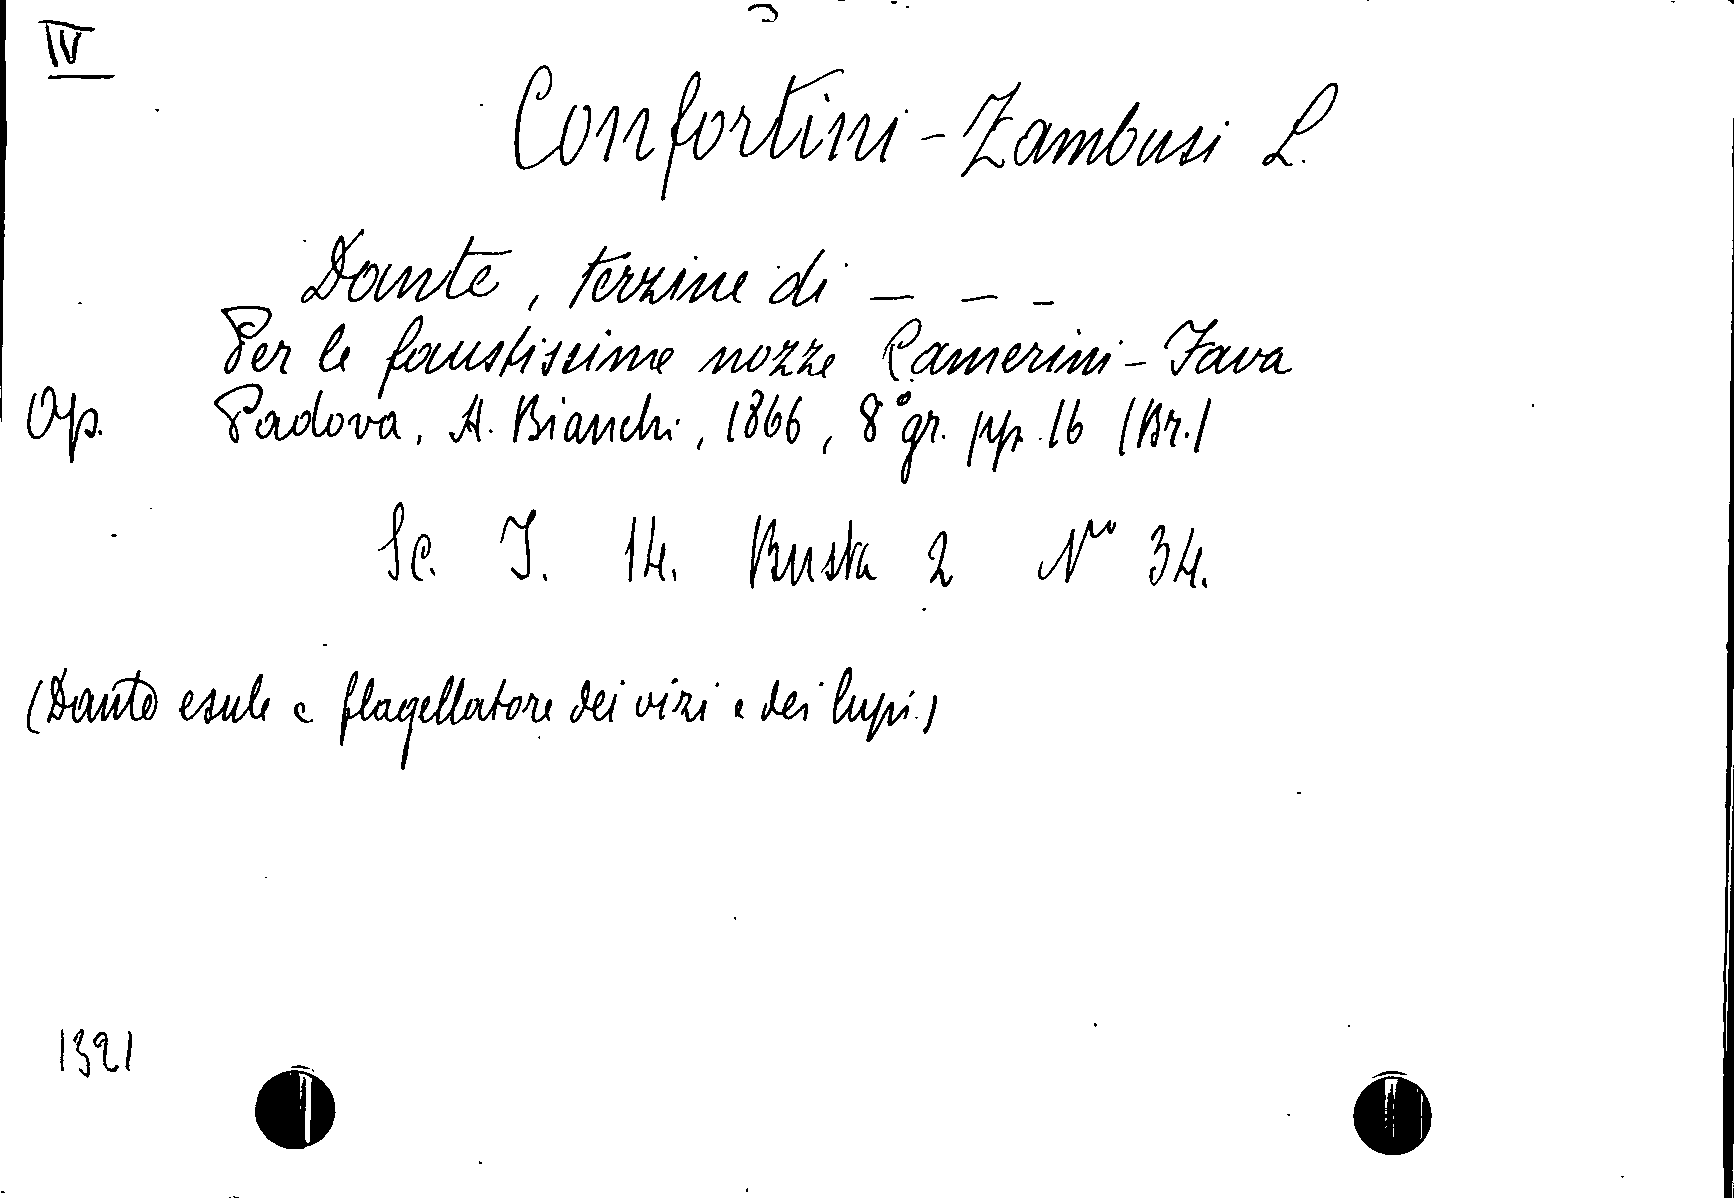 IV
Confortini - Zambusi L.
Dante, terzine di _ _ _
Per le faustissime nozze Camerini - Fava
Op. Padova, A. Bianchi, 1866, 8° gr. pp. 16 (Br.)
Sc. I. 14. Busta 2 N° 34.
(Dante esule e flagellatore dei vizi e dei lupi.)
1321